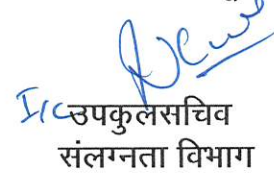 I/c उपकुलसचिव
संलग्नता विभाग